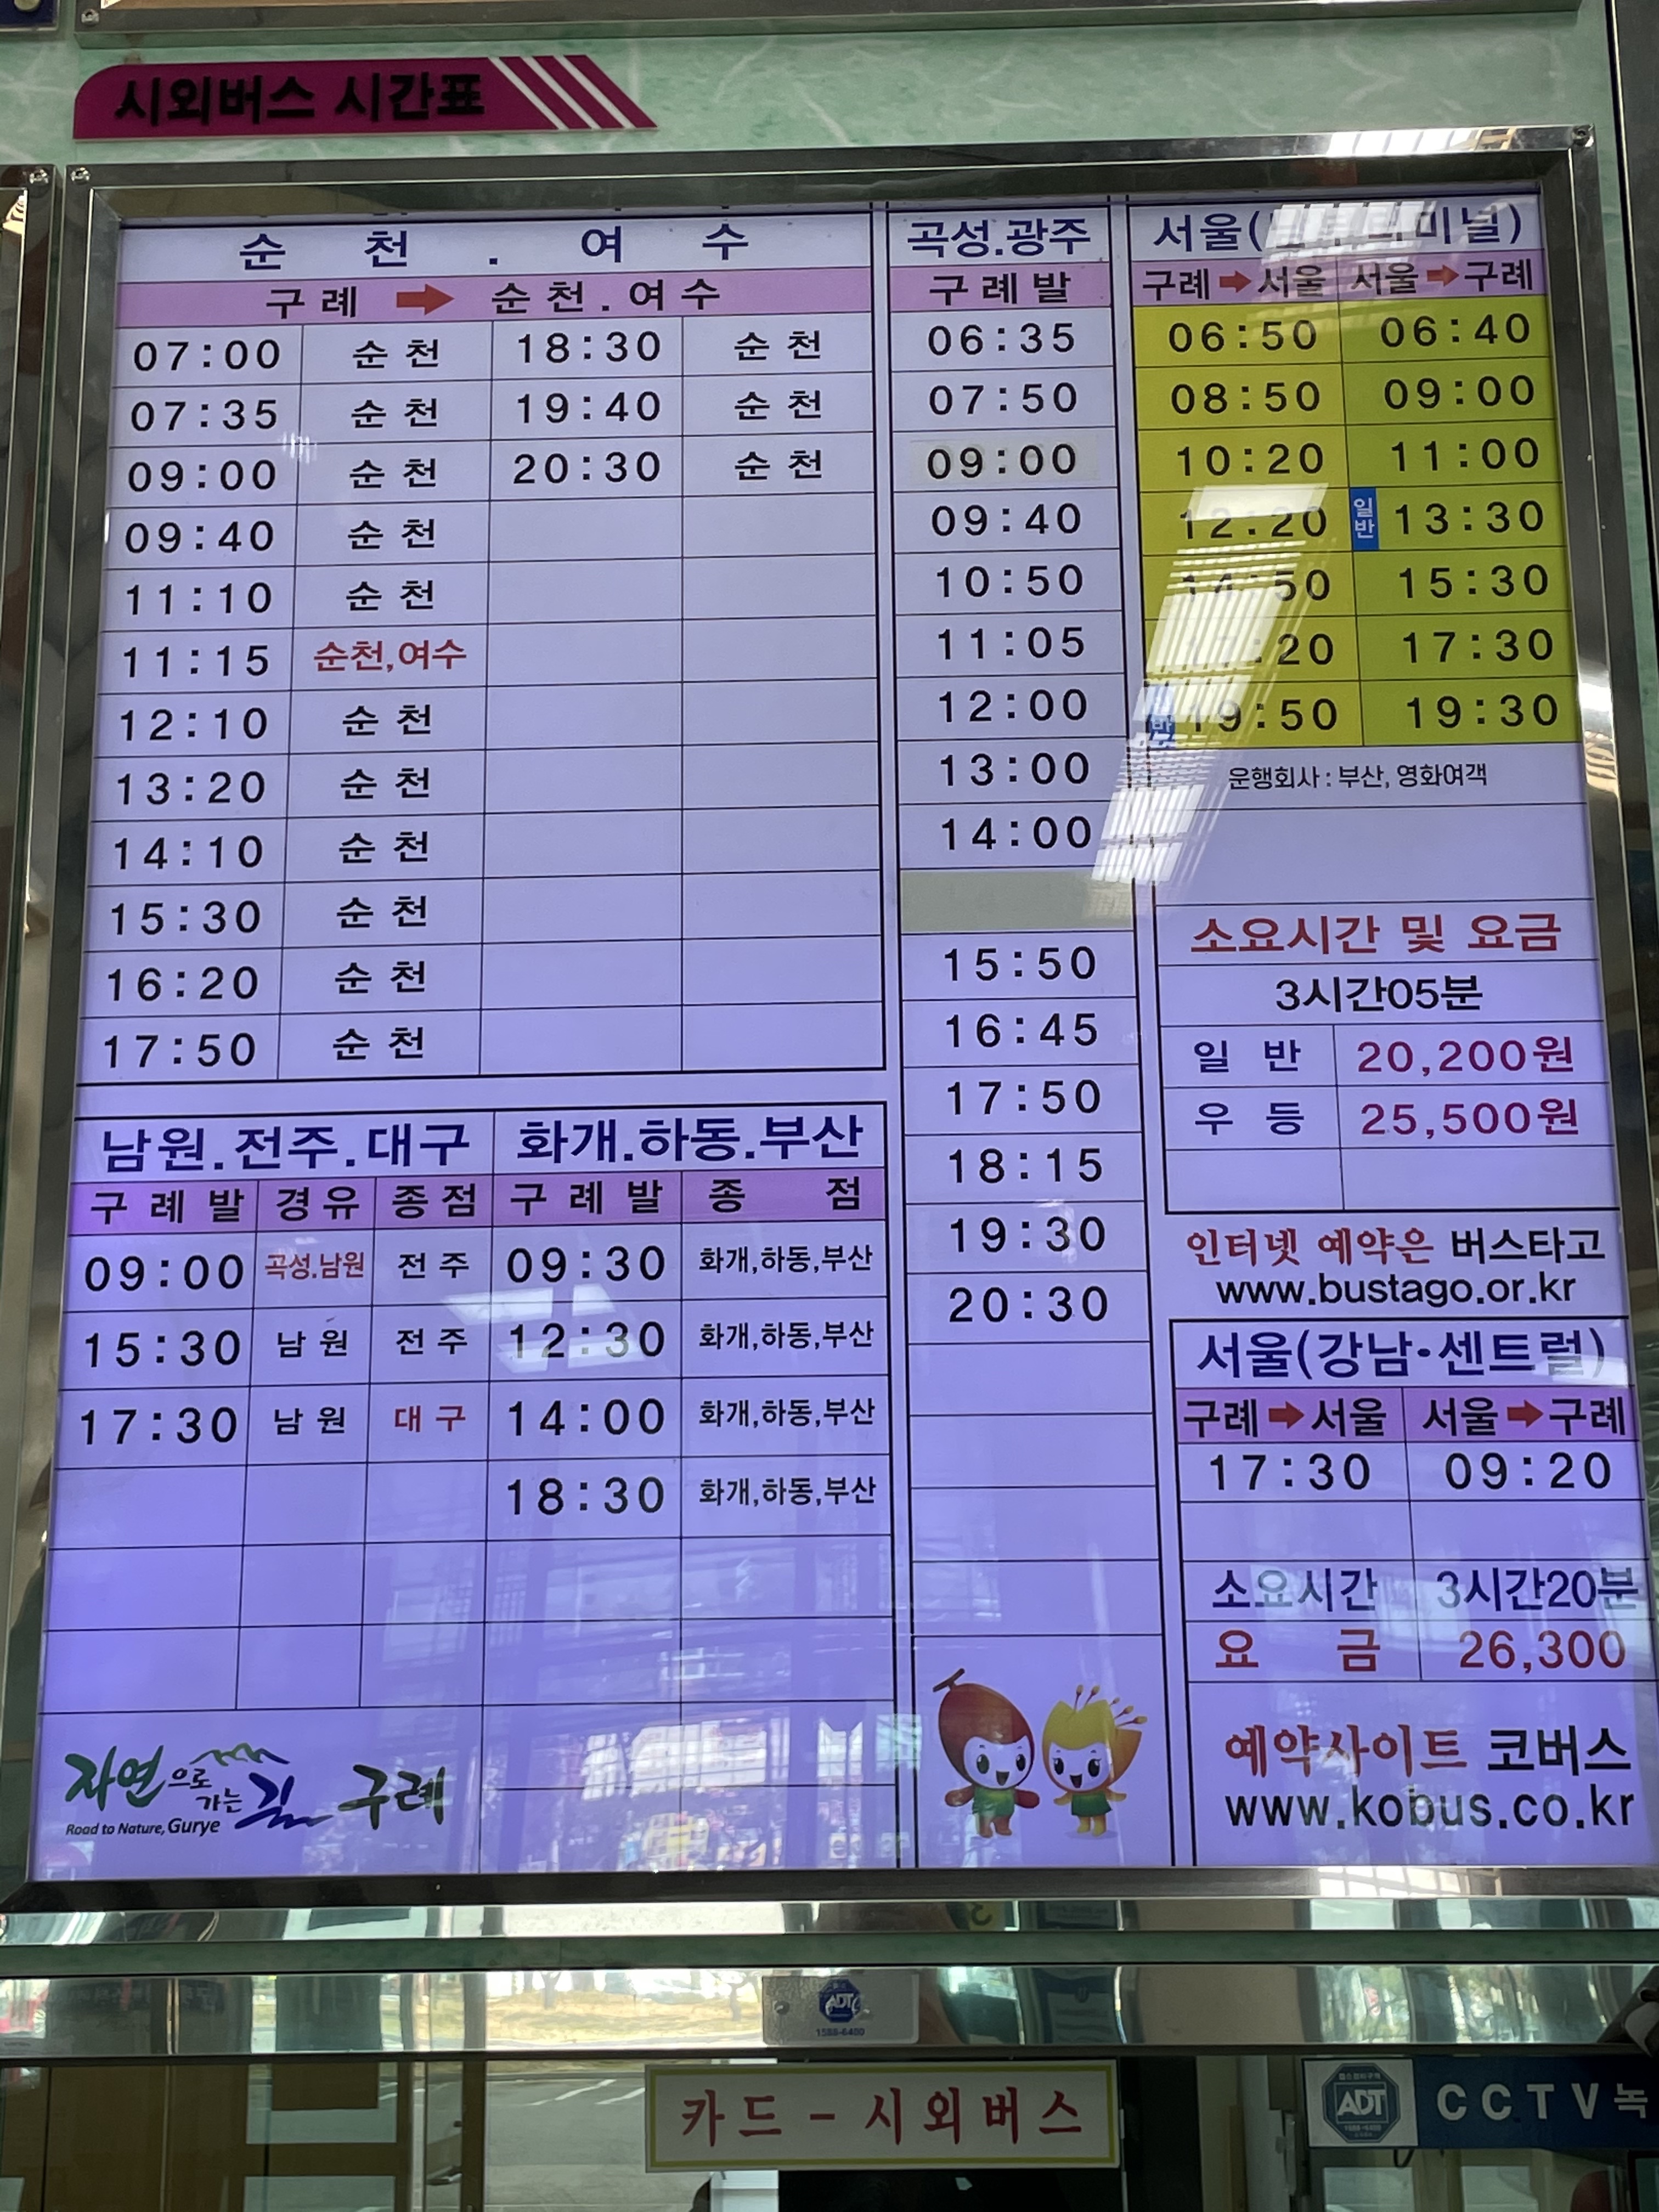 시외버스 시간표
순 천 . 여 수
구 례 ➡ 순 천 . 여 수
07:00 순 천 18:30 순 천
07:35 순 천 19:40 순 천
09:00 순 천 20:30 순 천
09:40 순 천
11:10 순 천
11:15 순천,여수
12:10 순 천
13:20 순 천
14:10 순 천
15:30 순 천
16:20 순 천
17:50 순 천
남원.전주.대구
구 례 발 경유 종점
09:00 곡성.남원 전 주
15:30 남 원 전 주
17:30 남 원 대 구
화개.하동.부산
구 례 발 종 점
09:30 화개,하동,부산
12:30 화개,하동,부산
14:00 화개,하동,부산
18:30 화개,하동,부산
자연으로 가는 길 구례
Road to Nature, Gurye
곡성.광주
구 례 발
06:35
07:50
09:00
09:40
10:50
11:05
12:00
13:00
14:00
15:50
16:45
17:50
18:15
19:30
20:30
서울(
미널)
구례➡서울 서울➡구례
06:50 06:40
08:50 09:00
10:20 11:00
12:20 일반 13:30
14:50 15:30
:20 17:30
19:50 19:30
운행회사 : 부산, 영화여객
소요시간 및 요금
3시간05분
일 반 20,200원
우 등 25,500원
인터넷 예약은 버스타고
www.bustago.or.kr
서울(강남·센트럴)
구례➡서울 서울➡구례
17:30 09:20
소요시간 3시간20분
요 금 26,300
예약사이트 코버스
www.kobus.co.kr
ADT
1588-6400
카드 - 시외버스
ADT
CCTV녹